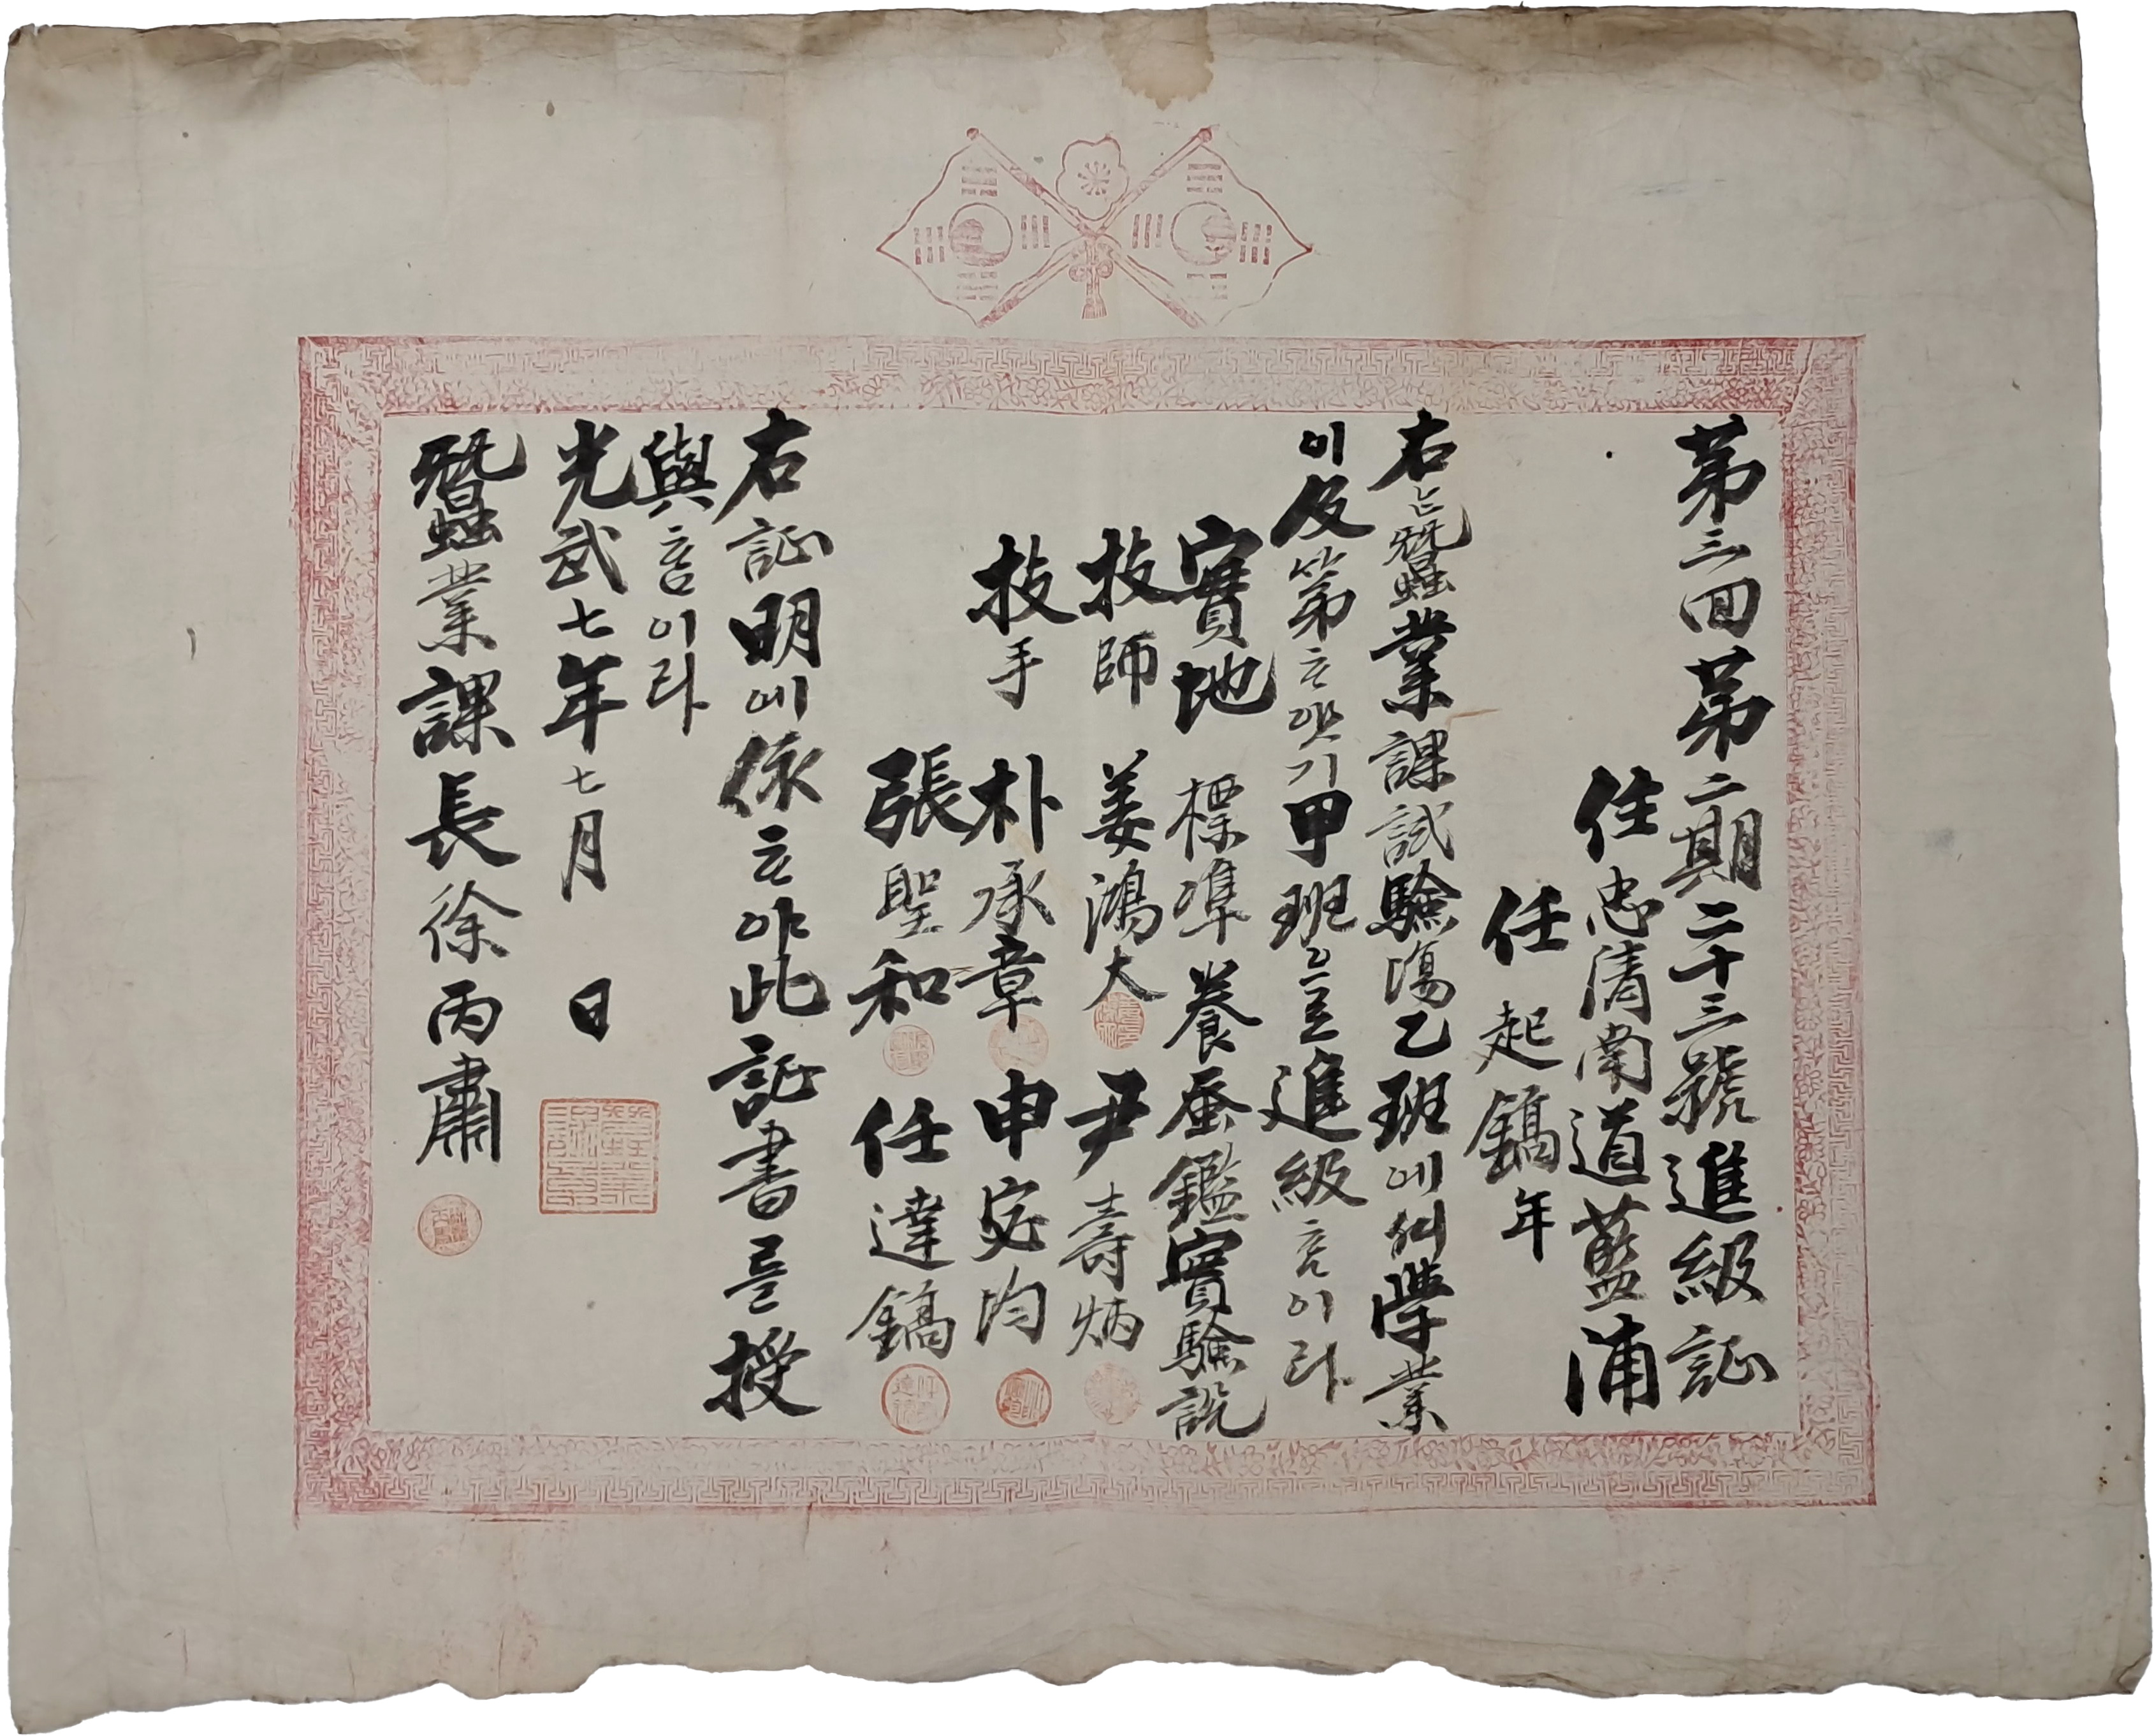 第三回第二期二十三號進級証
住忠淸南道藍浦
任起鎬年
右と蠶業課試驗場乙班에셔學業
이及第ᄒᆞ얏기甲班으로進級홈이라
實地標準養蚕鑑實驗說
技師姜鴻大尹壽炳
技手朴承章申宅均
張聖和任達鎬
右証明에依ᄒᆞ야此証書를授
與홈이라
光武七年七月日
蠶業課長徐丙肅